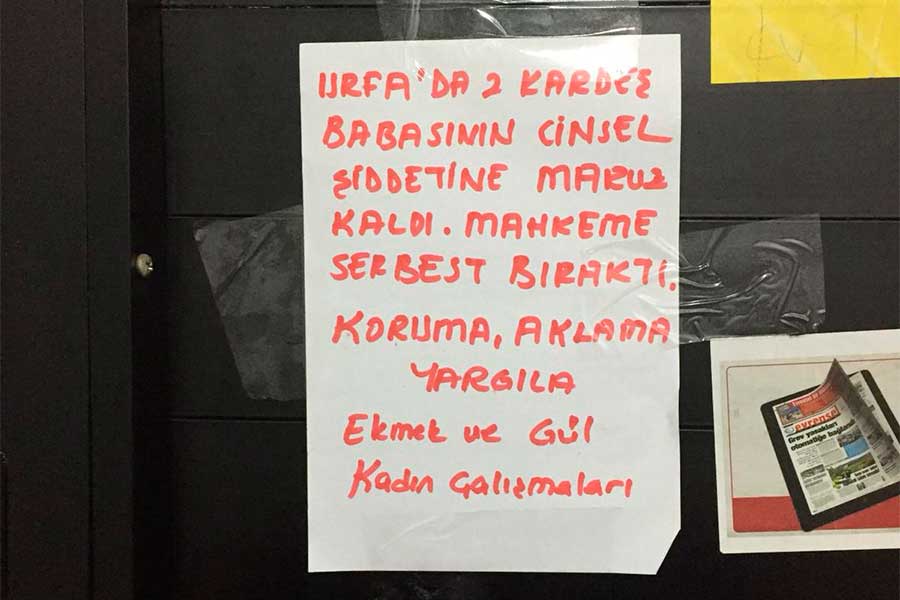 URFA'DA 2 KARDEŞ
BABASININ CİNSEL
ŞİDDETİNE MARUZ
KALDI. MAHKEME
SERBEST BIRAKTI.
KORUMA, AKLAMA
YARGILA
Ekmek ve Gül
Kadın Çalışmaları
evrensel
Grev yasakları
otomatiğe bağlandı